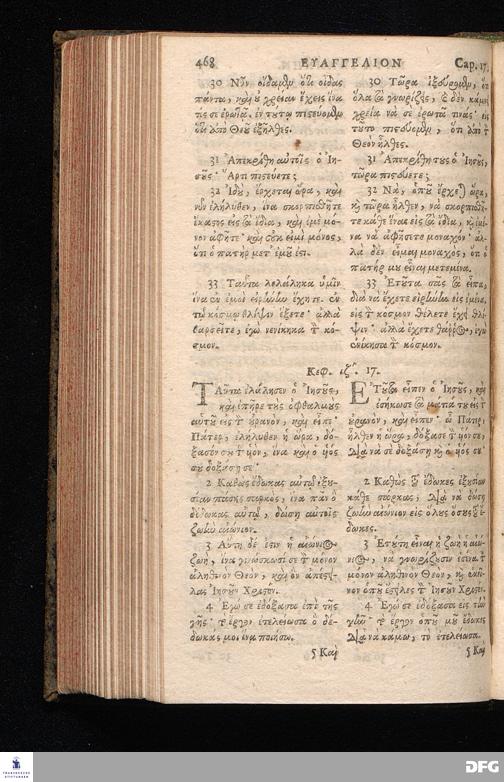 468 ΕΥΑΓΓΕΛΙΟΝ Cap. 17.
30 Νῦν οἴδαμεν ὅτι οἶδας
πάντα, καὶ οὐ χρείαν ἔχεις ἵνα
τίς σε ἐρωτᾷ. ἐν τούτῳ πιστεύομεν
ὅτι ἀπὸ Θεοῦ ἐξῆλθες.
31 Ἀπεκρίθη αὐτοῖς ὁ Ἰη-
σοῦς· Ἄρτι πιστεύετε;
32 Ἰδοὺ, ἔρχεται ὥρα, καὶ
νῦν ἐλήλυθεν, ἵνα σκορπισθῆτε
ἕκαστος εἰς τὰ ἴδια, καὶ ἐμὲ μό-
νον ἀφῆτε· καὶ οὐκ εἰμὶ μόνος,
ὅτι ὁ πατὴρ μετ' ἐμοῦ ἐστι.
33 Ταῦτα λελάληκα ὑμῖν
ἵνα ἐν ἐμοὶ εἰρήνην ἔχητε. ἐν
τῷ κόσμῳ θλίψιν ἕξετε· ἀλλὰ
θαρσεῖτε, ἐγὼ νενίκηκα τὸν κό-
σμον.
Κεφ. ιζʹ. 17.
ΤΑῦτα ἐλάλησεν ὁ Ἰησοῦς,
καὶ ἐπῆρε τοὺς ὀφθαλμοὺς
αὑτοῦ εἰς τὸν οὐρανὸν, καὶ εἶπε·
Πάτερ, ἐλήλυθεν ἡ ὥρα, δό-
ξασόν σου τὸν υἱὸν, ἵνα καὶ ὁ υἱός
σου δοξάσῃ σε·
2 Καθὼς ἔδωκας αὐτῷ ἐξου-
σίαν πάσης σαρκὸς, ἵνα πᾶν ὃ
δέδωκας αὐτῷ, δώσῃ αὐτοῖς
ζωὴν αἰώνιον.
3 Αὕτη δέ ἐστιν ἡ αἰώνιος
ζωὴ, ἵνα γινώσκωσί σε τὸν μόνον
ἀληθινὸν Θεὸν, καὶ ὃν ἀπέστει-
λας Ἰησοῦν Χριστόν.
4 Ἐγώ σε ἐδόξασα ἐπὶ τῆς
γῆς· τὸ ἔργον ἐτελείωσα ὃ δέ-
δωκάς μοι ἵνα ποιήσω.
5 Καὶ
30 Τῶρα ἐξεύρομεν, ὅτι
ὅλα τὰ γνωρίζεις, καὶ δὲν κάμνει
χρεία νὰ σὲ ἐρωτᾷ τινάς· εἰς
τοῦτο πιστεύομεν, ὅτι ἀπὸ τὸν
Θεὸν ἦλθες.
31 Ἀπεκρίθη τους ὁ Ἰησοῦς,
τῶρα πιστεύετε;
32 Νὰ, ὁποῦ ἔρχεται ὥρα,
καὶ τῶρα ἦλθεν, νὰ σκορπισθῆ-
τε κάθε ἕνας εἰς τὰ ἴδια, καὶ ἐμέ-
να νὰ ἀφήσετε μοναχόν· ἀλ-
λὰ δὲν εἶμαι μοναχὸς, ὅτι ὁ
πατήρ μου εἶναι μετ' ἐμένα.
33 Ἐτοῦτα σᾶς τὰ εἶπα,
διὰ νὰ ἔχετε εἰρήνην εἰς ἐμένα,
εἰς τὸν κόσμον θέλετε ἔχῃ θλί-
ψιν· ἀλλὰ ἔχετε θάρρος, ἐγὼ
ἐνίκησα τὸν κόσμον.
ΕΤοῦτα εἶπεν ὁ Ἰησοῦς, καὶ
ἐσήκωσε τὰ μάτιά του εἰς τὸν
οὐρανὸν, καὶ εἶπεν· ὦ Πάτερ,
ἦλθεν ἡ ὥρα, δόξασε τὸν υἱόν σου,
διὰ νὰ σὲ δοξάσῃ καὶ ὁ υἱός σου·
2 Καθὼς τοῦ ἔδωκες ἐξουσίαν
κάθε σάρκας, διὰ νὰ δώσῃ
ζωὴν αἰώνιον εἰς ὅλους ὅσους τοῦ ἔ-
δωκες.
3 Ἐτούτη εἶναι ἡ ζωὴ ἡ αἰώ-
νιος, νὰ γνωρίζουσιν ἐσένα τὸν
μόνον ἀληθινὸν Θεὸν, καὶ ἐκεῖ-
νον ὁποῦ ἔστειλες τὸν Ἰησοῦν Χριστόν.
4 Ἐγώ σε ἐδόξασα εἰς τὴν
γῆν· τὸ ἔργον ὁποῦ μοῦ ἔδωκες
διὰ νὰ κάμω, τὸ ἐτελείωσα.
5 Καὶ
FRANCKESCHE
STIFTUNGEN
DFG